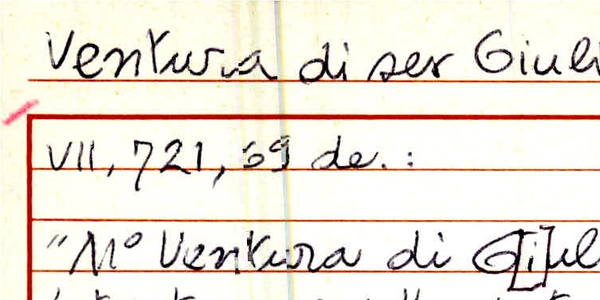 Ventura di ser Giuli
VII, 721, 69 de. :
"M° Ventura di G[i]ul